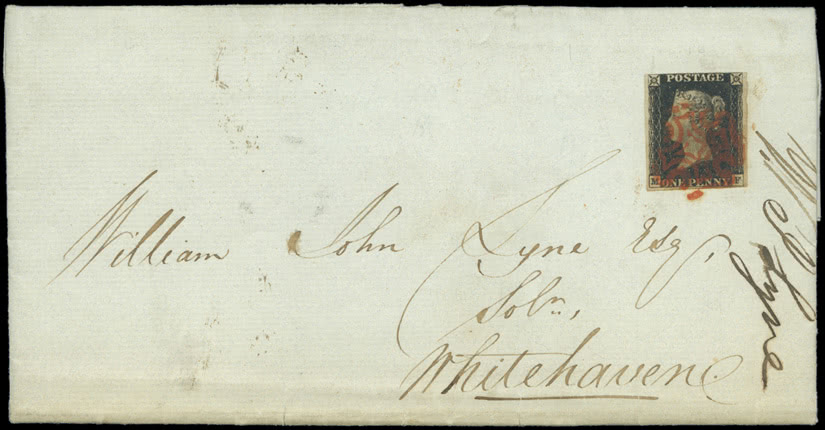 POSTAGE
ONE PENNY
M F
William John Lyne Esq,
Solr,
Whitehaven